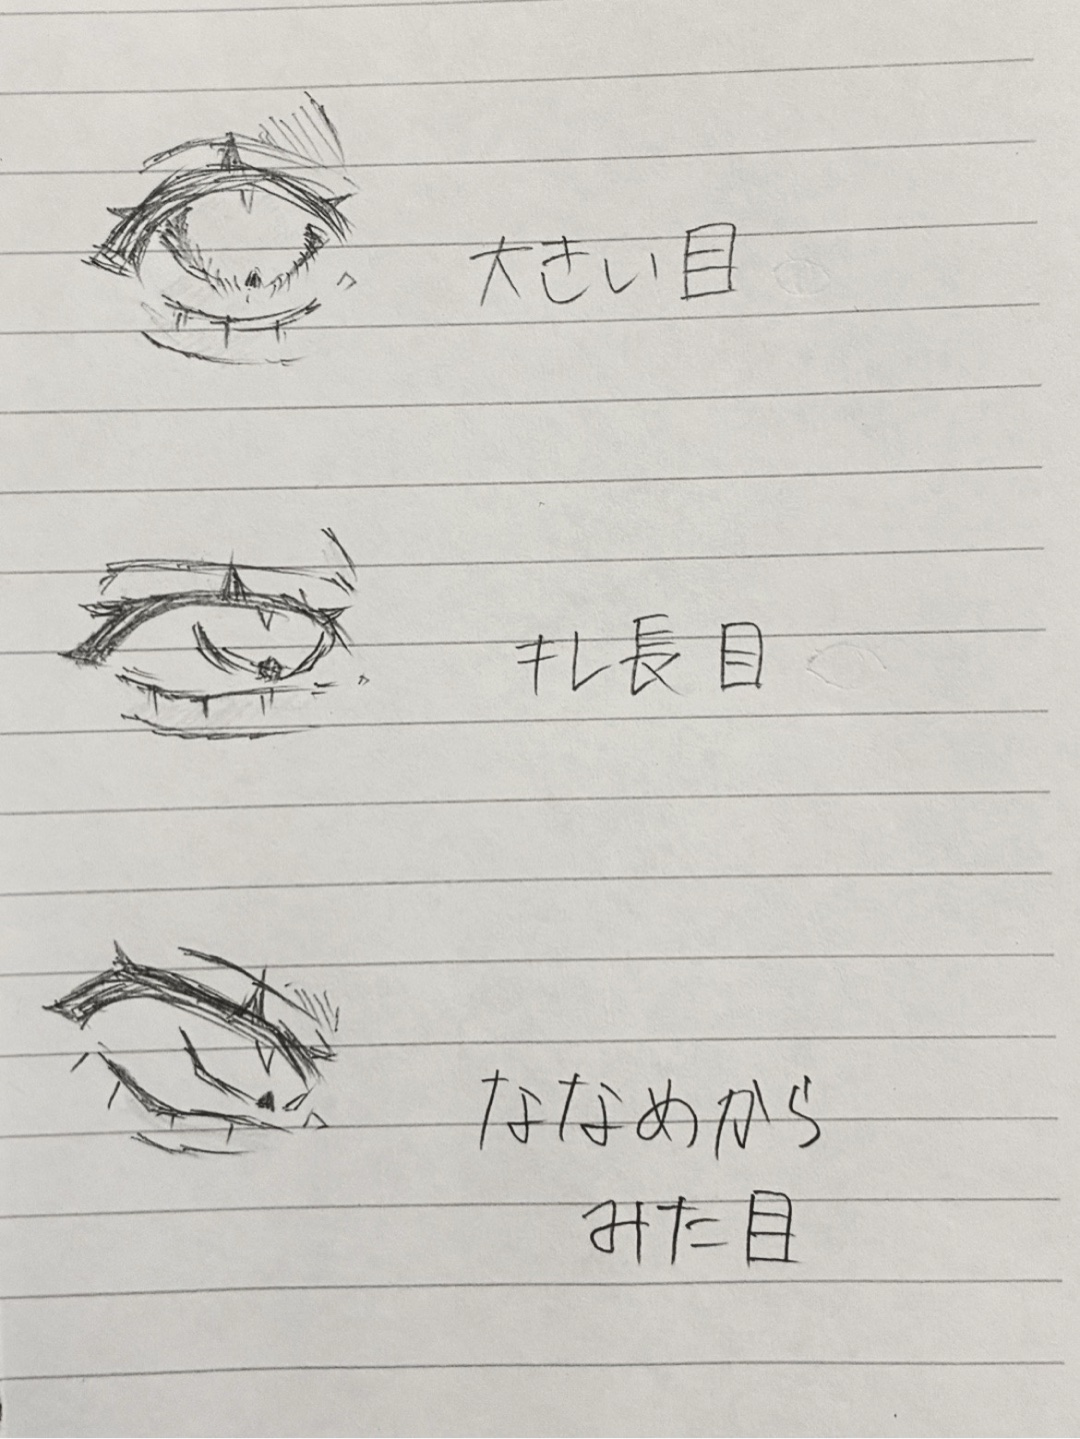 大きい目
キレ長目
ななめから
みた目